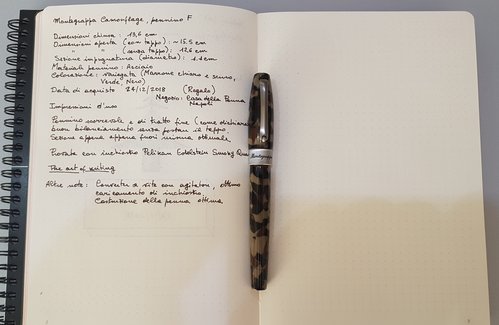 Montegrappa Camouflage, pennino F
Dimensioni chiusa : 13,6 cm
Dimensioni aperta (con tappo) : ~15.5 cm
" " (senza tappo) : 12,6 cm
Sezione impugnatura (diametro) : 1.1 cm
Materiali pennino : Acciaio
Colorazione : variegata (Marrone chiaro e scuro,
Verde, Nero)
Data di acquisto 24/12/2018 (Regalo)
Negozio: Casa della Penna
Napoli
Impressioni d'uso
Pennino scorrevole e di tratto fine (come
buon bilanciamento senza postare il tappo.
Sezione appena appena fuori misura ottimale.
Provata con inchiostro Pelikan Edelstein Smoky Quartz
The art of writing
Altre note : Converter a vite con agitatore, ottimo
caricamento di inchiostro.
Costruzione della penna ottima.
Montegrappa